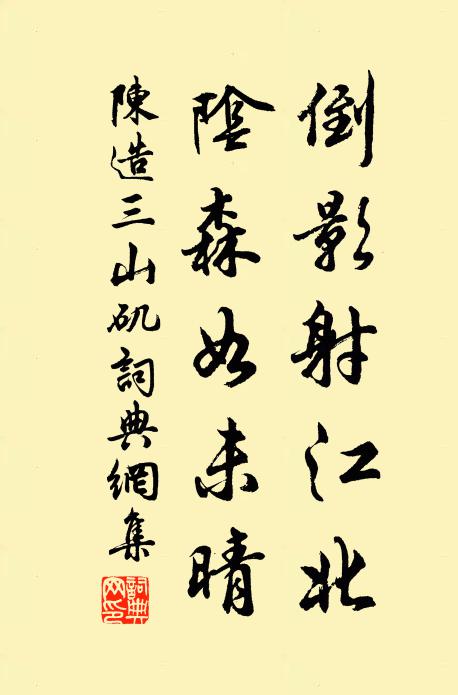 倒影射江北
陰森如未晴
陳造三山矶詞典網集
詞典
网印